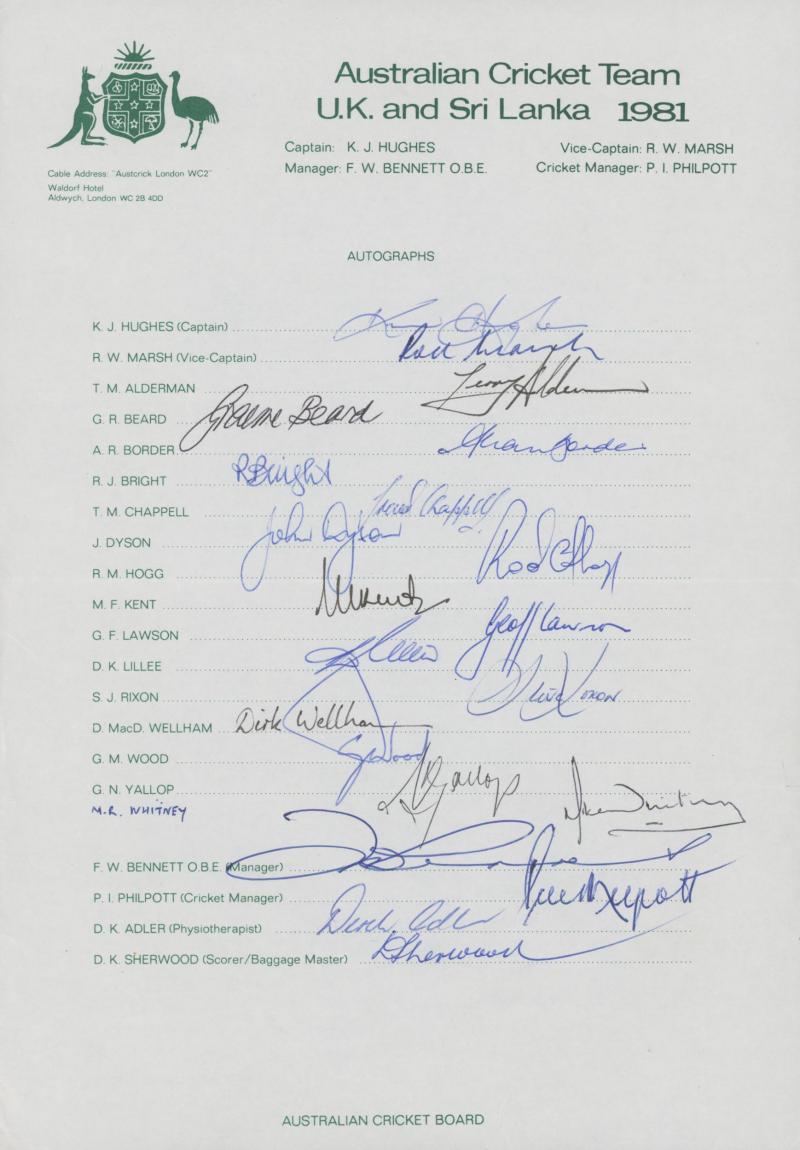 Australian Cricket Team
U.K. and Sri Lanka 1981
Captain: K. J. HUGHES Vice-Captain: R. W. MARSH
Manager: F. W. BENNETT O.B.E. Cricket Manager: P. I. PHILPOTT
Cable Address: "Austcrick London WC2"
Waldorf Hotel
Aldwych, London WC 2B 4DD
AUTOGRAPHS
K. J. HUGHES (Captain) Kim Hughes
R. W. MARSH (Vice-Captain) Rod Marsh
T. M. ALDERMAN Terry Alderman
G. R. BEARD Graeme Beard
A. R. BORDER Allan Border
R. J. BRIGHT R Bright
T. M. CHAPPELL Trevor Chappell
J. DYSON John Dyson
R. M. HOGG Rod Hogg
M. F. KENT M Kent
G. F. LAWSON Geoff Lawson
D. K. LILLEE DK Lillee
S. J. RIXON Steve Rixon
D. MacD. WELLHAM Dirk Wellham
G. M. WOOD G Wood
G. N. YALLOP G Yallop
M.R. WHITNEY Mike Whitney
F. W. BENNETT O.B.E. (Manager)
P. I. PHILPOTT (Cricket Manager) Peter Philpott
D. K. ADLER (Physiotherapist) Derek Adler
D. K. SHERWOOD (Scorer/Baggage Master) D Sherwood
AUSTRALIAN CRICKET BOARD